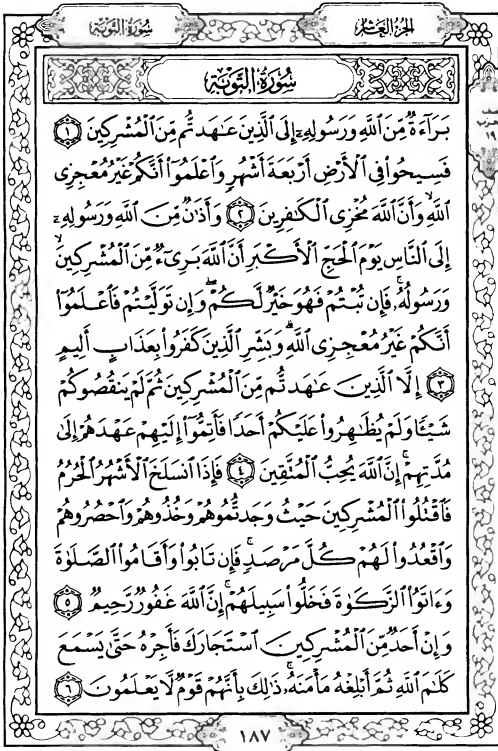 سُورَةُ التَّوْبَةِ
الجُزْءُ العَاشِرُ
١٩
سُورَةُ التَّوْبَةِ
بَرَآءَةٌ مِّنَ ٱللَّهِ وَرَسُولِهِۦٓ إِلَى ٱلَّذِينَ عَٰهَدتُّم مِّنَ ٱلْمُشْرِكِينَ ١
فَسِيحُوا۟ فِى ٱلْأَرْضِ أَرْبَعَةَ أَشْهُرٍ وَٱعْلَمُوٓا۟ أَنَّكُمْ غَيْرُ مُعْجِزِى
ٱللَّهِ ۙ وَأَنَّ ٱللَّهَ مُخْزِى ٱلْكَٰفِرِينَ ٢ وَأَذَٰنٌ مِّنَ ٱللَّهِ وَرَسُولِهِۦٓ
إِلَى ٱلنَّاسِ يَوْمَ ٱلْحَجِّ ٱلْأَكْبَرِ أَنَّ ٱللَّهَ بَرِىٓءٌ مِّنَ ٱلْمُشْرِكِينَ ۙ
وَرَسُولُهُۥ ۚ فَإِن تُبْتُمْ فَهُوَ خَيْرٌ لَّكُمْ ۖ وَإِن تَوَلَّيْتُمْ فَٱعْلَمُوٓا۟
أَنَّكُمْ غَيْرُ مُعْجِزِى ٱللَّهِ ۗ وَبَشِّرِ ٱلَّذِينَ كَفَرُوا۟ بِعَذَابٍ أَلِيمٍ
٣ إِلَّا ٱلَّذِينَ عَٰهَدتُّم مِّنَ ٱلْمُشْرِكِينَ ثُمَّ لَمْ يَنقُصُوكُمْ
شَيْـًٔا وَلَمْ يُظَٰهِرُوا۟ عَلَيْكُمْ أَحَدًا فَأَتِمُّوٓا۟ إِلَيْهِمْ عَهْدَهُمْ إِلَىٰ
مُدَّتِهِمْ ۚ إِنَّ ٱللَّهَ يُحِبُّ ٱلْمُتَّقِينَ ٤ فَإِذَا ٱنسَلَخَ ٱلْأَشْهُرُ ٱلْحُرُمُ
فَٱقْتُلُوا۟ ٱلْمُشْرِكِينَ حَيْثُ وَجَدتُّمُوهُمْ وَخُذُوهُمْ وَٱحْصُرُوهُمْ
وَٱقْعُدُوا۟ لَهُمْ كُلَّ مَرْصَدٍ ۚ فَإِن تَابُوا۟ وَأَقَامُوا۟ ٱلصَّلَوٰةَ
وَءَاتَوُا۟ ٱلزَّكَوٰةَ فَخَلُّوا۟ سَبِيلَهُمْ ۚ إِنَّ ٱللَّهَ غَفُورٌ رَّحِيمٌ ٥
وَإِنْ أَحَدٌ مِّنَ ٱلْمُشْرِكِينَ ٱسْتَجَارَكَ فَأَجِرْهُ حَتَّىٰ يَسْمَعَ
كَلَٰمَ ٱللَّهِ ثُمَّ أَبْلِغْهُ مَأْمَنَهُۥ ۚ ذَٰلِكَ بِأَنَّهُمْ قَوْمٌ لَّا يَعْلَمُونَ ٦
١٨٧